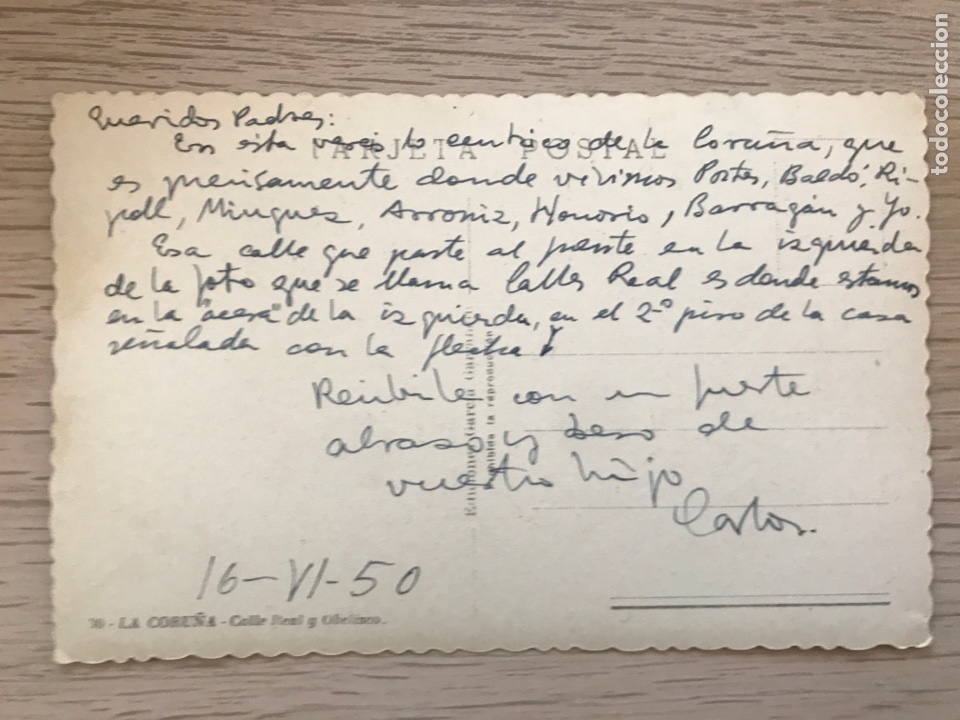 Queridos Padres:
TARJETA POSTAL
En esta vereis lo centrico de la Coruña, que
es precisamente donde vivimos Portes, Baldó, Ri-
poll, Minguez, Arroniz, Honorio, Barragán y Yo.
Esa calle que parte al frente en la izquierda
de la foto que se llama Calle Real es donde estamos
en la "acera" de la izquierda, en el 2º piso de la casa
señalada con la flecha
Recibid con un fuerte
abrazo y beso de
vuestro hijo
Carlos.
16-VI-50
70 - LA CORUÑA - Calle Real y Obelisco.
Ediciones García Garrabella
Prohibida la reproducción
todocoleccion